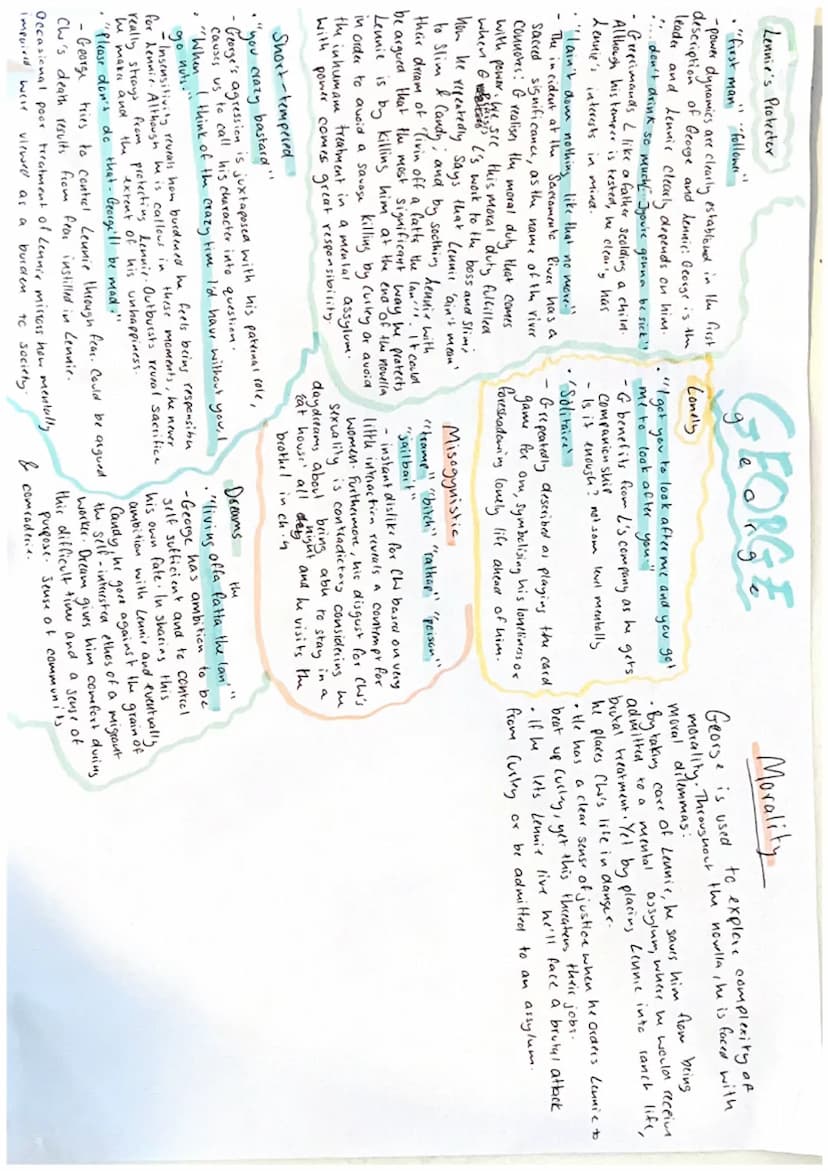 GEORGE
george
Lennie's Protecter
• "first man" "follower"
- power dynamics are clearly established in the first
description of George and Lennie: George is the
leader and Lennie clearly depends on him.
• "... don't drink so much" "you're gonna be sick"
- G reccimands L like a father scolding a child.
Although his temper is tested, he clearly has
Lennie's interests in mind.
• "I ain't done nothing like that no more"
- The incident at the Sacramento River has a
sacred significance, as the name of the river
connotes: G realises the moral duty that comes
with power. We see this moral duty fulfilled
when G praises L's work to the boss and Slim;
how he repeatedly says that Lennie 'ain't mean'
to Slim & Candy; and by soothing Lennie with
their dream of "livin off a fatta the lan'". It could
be argued that the most significant way he protects
Lennie is by killing him at the end of the novella
in order to avoid a savage killing by Curley or avoid
the inhumane treatment in a mental assylum.
with power comes great responsibility.
Short-tempered
• "you crazy bastard"
- George's agression is juxtaposed with his paternal role,
causes us to call his character into question.
• "When I think of the crazy time I'd have without you, I
go nuts."
- Insensitivity reveals how burdened he feels being responsible
for Lennie. Although he is callous in these moments, he never
really strays from protecting Lennie. Outbursts reveal sacrifice
he makes and the extent of his unhappiness.
• "Please don't do that - George'll be mad."
- George tries to control Lennie through fear. Could be argued
CW's death results from fear instilled in Lennie.
Occasional poor treatment of Lennie mirrors how mentally
impaired were viewed as a burden to society.
Lonely
• "I got you to look after me and you got
me to look after you"
- G benefits from L's company as he gets
companionship
- Is it enough? not same level mentally
• "Solitaire"
- G repeatedly described as playing the card
game for one, symbolising his loneliness or
foreshadowing lonely life ahead of him.
Misogynistic
"tramp" "bitch" "rattrap" "poison"
"jailbait"
- instant dislike for CW based on very
little interaction reveals a contempt for
women. Furthermore, his disgust for CW's
sexuality is contradictory considering he
daydreams about being able to stay in a
'cat house' all night and he visits the
brothel in ch.4
Dreams
• "living offa fatta the lan'"
- George has ambition to be
self sufficient and to control
his own fate. In sharing this
ambition with Lennie and eventually
Candy, he goes against the grain of
the self-interested ethos of a migrant
worker. Dream gives him comfort during
this difficult time and a sense of
purpose. Sense of community
& comradere.
Morality
George is used to explore complexity of
morality. Throughout the novella, he is faced with
moral dilemmas:
• By taking care of Lennie, he saves him from being
admitted to a mental assylum, where he would receive
brutal treatment. Yet by placing Lennie into ranch life,
he places CW's life in danger.
• He has a clear sense of justice when he orders Lennie to
beat up Curley, yet this threatens their jobs.
• If he lets Lennie live he'll face a brutal attack
from Curley or be admitted to an assylum.